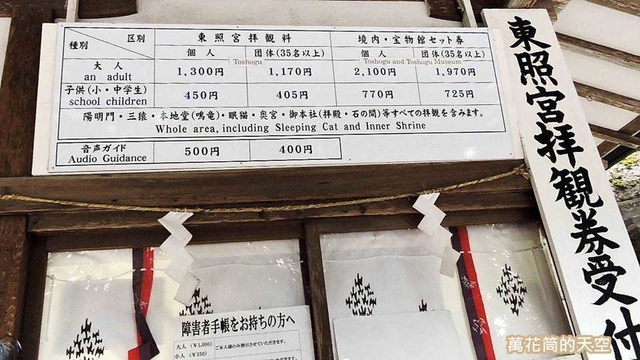 種別 区別 東照宮拝観料 境内・宝物館セット券
Toshogu Toshogu and Toshogu Museum
個人 団体(35名以上) 個人 団体(35名以上)
大人
an adult 1,300円 1,170円 2,100円 1,970円
子供(小・中学生)
school children 450円 405円 770円 725円
陽明門・三猿・本地堂(鳴竜)・眠猫・奥宮・御本社(拝殿・石の間)等すべての拝観を含みます。
Whole area, including Sleeping Cat and Inner Shrine
音声ガイド
Audio Guidance 500円 400円
東照宮拝観券受付
障害者手帳をお持ちの方へ
大人 ¥1,000
小人 ¥350
萬花筒的天空